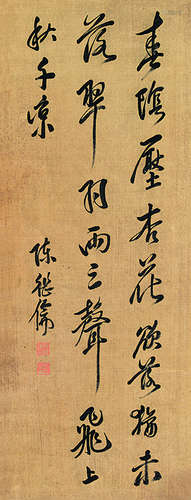 春陰壓杏花欲落猶未
落翠羽兩三聲飛上
秋千索
陳繼儒